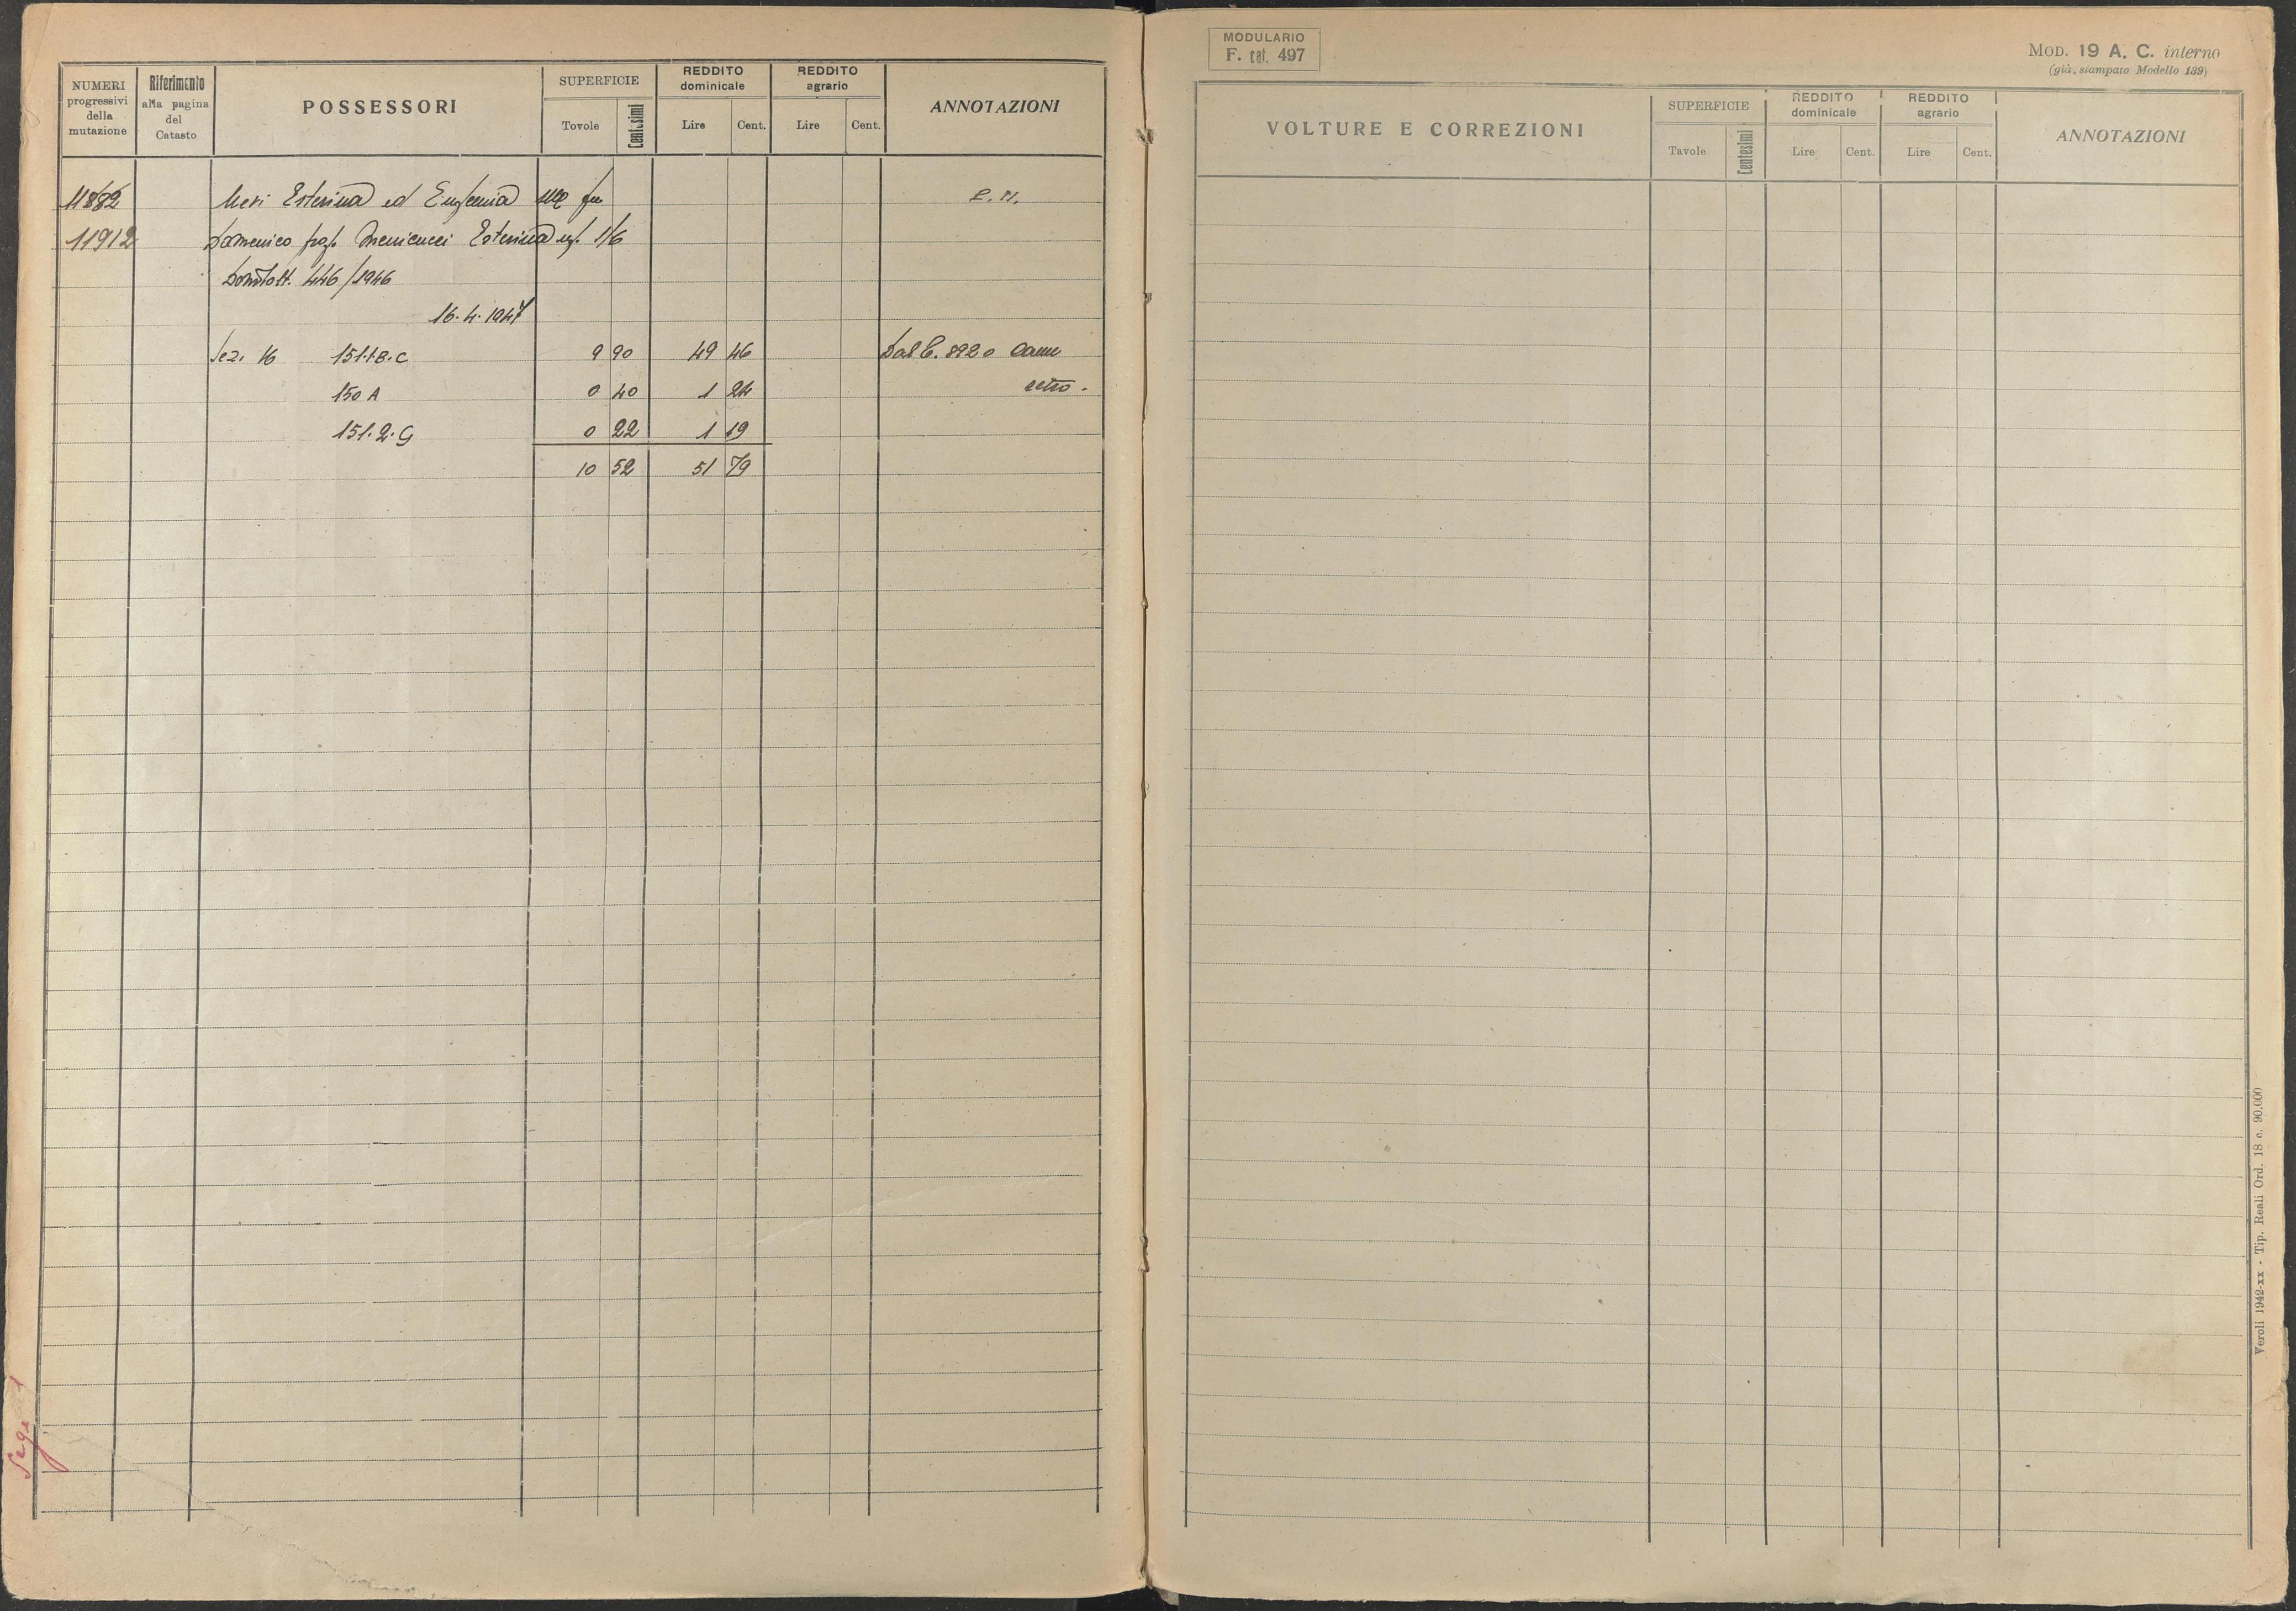 NUMERI progressivi della mutazione
Riferimento alla pagina del Catasto
POSSESSORI
SUPERFICIE
Tovole
Centesimi
REDDITO dominicale
Lire Cent.
REDDITO agrario
Lire Cent.
ANNOTAZIONI
11882 Neri Esterina ed Eugenia fu
11912 Domenico prop. Menicucci Esterina usf. 1/6
446/1946
16.4.1947
Sez. 16 151.1B.C 9 90 49 46 Dal C. 8920 Come
150 A 0 40 1 24 retro.
151.2.G 0 22 1 19
10 52 51 79
Segue
MODULARIO
F. cat. 497
MOD. 19 A. C. interno
(già stampato Modello 139)
VOLTURE E CORREZIONI
SUPERFICIE
Tavole
Centesimi
REDDITO dominicale
Lire Cent.
REDDITO agrario
Lire Cent.
ANNOTAZIONI
Veroli 1942-XX - Tip. Reali Ord. 18 c. 90.000